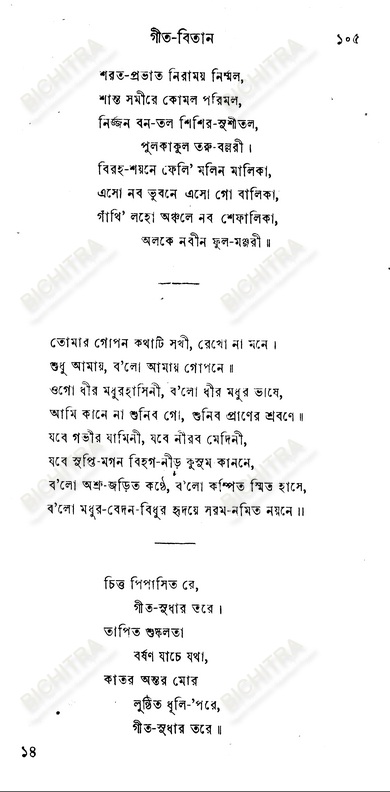 গীত-বিতান ১০৫
শরত-প্রভাত নিরাময় নির্ম্মল,
শান্ত সমীরে কোমল পরিমল,
নির্জ্জন বন-তল শিশির-সুশীতল,
পুলকাকুল তরু-বল্লরী।
বিরহ-শয়নে ফেলি’ মলিন মালিকা,
এসো নব ভুবনে এসো গো বালিকা,
গাঁথি’ লহো অঞ্চলে নব শেফালিকা,
অলকে নবীন ফুল-মঞ্জরী॥
তোমার গোপন কথাটি সখী, রেখো না মনে।
শুধু আমায়, ব’লো আমায় গোপনে॥
ওগো ধীর মধুরহাসিনী, ব’লো ধীর মধুর ভাষে,
আমি কানে না শুনিব গো, শুনিব প্রাণের শ্রবণে॥
যবে গভীর যামিনী, যবে নীরব মেদিনী,
যবে সুপ্তি-মগন বিহগ-নীড় কুসুম কাননে,
ব’লো অশ্রু-জড়িত কণ্ঠে, ব’লো কম্পিত স্মিত হাসে,
ব’লো মধুর-বেদন-বিধুর হৃদয়ে সরম-নমিত নয়নে॥
চিত্ত পিপাসিত রে,
গীত-সুধার তরে।
তাপিত শুষ্কলতা
বর্ষণ যাচে যথা,
কাতর অন্তর মোর
লুণ্ঠিত ধূলি-’পরে,
গীত-সুধার তরে॥
১৪
BICHITRA
BICHITRA
BICHITRA
BICHITRA
BICHITRA
BICHITRA
BICHITRA
BICHITRA